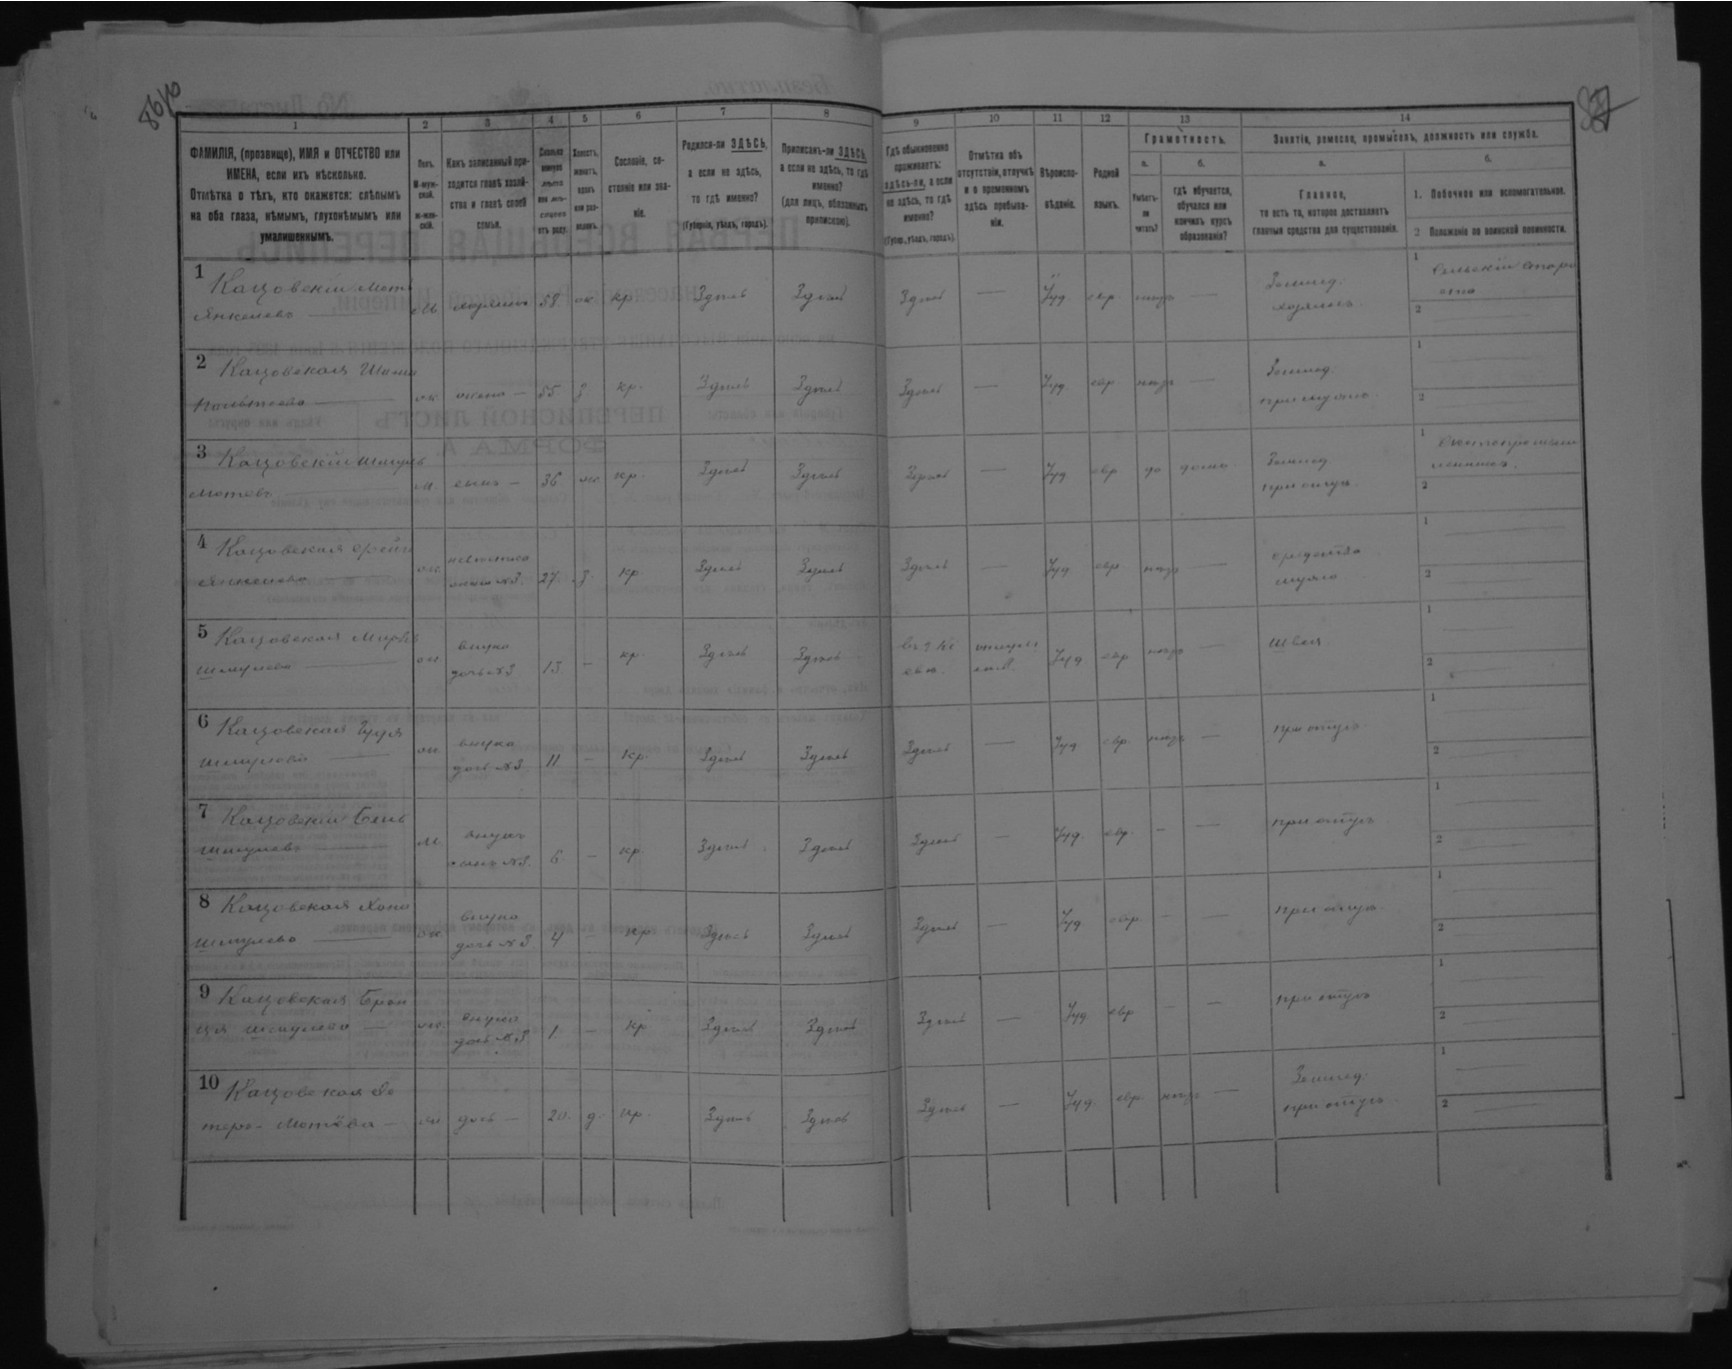 86об
87
1 2 3 4 5 6 7 8 9 10 11 12 13 14
ФАМИЛІЯ, (прозвище), ИМЯ и ОТЧЕСТВО или
ИМЕНА, если ихъ нѣсколько.
Отмѣтка о тѣхъ, кто окажется: слѣпымъ
на оба глаза, нѣмымъ, глухонѣмымъ или
умалишеннымъ.
Полъ.
М-муж-
ской.
ж-жен-
скій.
Какъ записанный при-
ходится главѣ хозяй-
ства и главѣ своей
семьи.
Сколько
минуло
лѣтъ
или мѣ-
сяцевъ
отъ роду.
Холостъ,
женатъ,
вдовъ
или раз-
веденъ.
Сословіе, со-
стояніе или зва-
ніе.
Родился-ли ЗДѢСЬ,
а если не здѣсь,
то гдѣ именно?
(Губернія, уѣздъ, городъ).
Приписанъ-ли ЗДѢСЬ,
а если не здѣсь, то гдѣ
именно?
(для лицъ, обязанныхъ
припискою).
Гдѣ обыкновенно
проживаетъ:
здѣсь-ли, а если
не здѣсь, то гдѣ
именно?
(Губер., уѣздъ, городъ).
Отмѣтка объ
отсутствіи, отлучкѣ
и о временномъ
здѣсь пребыва-
ніи.
Вѣроиспо-
вѣданіе.
Родной
языкъ.
Грамотность.
а.
Умѣетъ-
ли
читать?
б.
гдѣ обучается,
обучался или
кончилъ курсъ
образованія?
Занятіе, ремесло, промыселъ, должность или служба.
а.
Главное,
то есть то, которое доставляетъ
главныя средства для существованія.
б.
1. Побочное или вспомогательное.
2 Положеніе по воинской повинности.
1 Кацовскій Мот
Янкелевъ м хозяинъ 58 ж кр Здѣсь Здѣсь Здѣсь — Іуд евр. нтъ —
Землед.
хозяинъ.
1 Сельскій старо
ста
2
2 Кацовская
ж жена — 55 з кр. Здѣсь Здѣсь Здѣсь — Іуд евр нтъ —
Землед
при мужѣ.
1
2
3 Кацовскій Шмуль
Мотевъ м. сынъ — 36 ж кр. Здѣсь Здѣсь Здѣсь — Іуд евр да дома
Землед
при отцѣ.
1
2
4 Кацовская
Янкелева ж невѣстка
жена №3. 27. з. кр Здѣсь Здѣсь Здѣсь — Іуд евр нтъ
средства
мужа
1
2
5 Кацовская
Шмулева ж внука
дочь №3 13 — кр. Здѣсь Здѣсь Іуд евр нтъ —
швея.
1
2
6 Кацовская
Шмулева ж внука
дочь №3 11 — кр. Здѣсь Здѣсь Здѣсь — Іуд евр. нтъ —
при отцѣ
1
2
7 Кацовскій
Шмулевъ м. внукъ
сынъ №3. 6 — кр Здѣсь Здѣсь Здѣсь — Іуд. евр. — —
при отцѣ
1
2
8 Кацовская Хана
Шмулева ж внука
дочь №3 4 — кр Здѣсь Здѣсь Здѣсь — Іуд. евр. — —
при отцѣ
1
2
9 Кацовская Брай
ця Шмулева — ж внука
дочь №3 1 — кр Здѣсь Здѣсь Здѣсь — Іуд евр — —
при отцѣ
1
2
10 Кацовская
Мотева — ж дочь — 20. д. кр. Здѣсь Здѣсь Здѣсь — Іуд. евр нтъ —
Землед.
при отцѣ
1
2